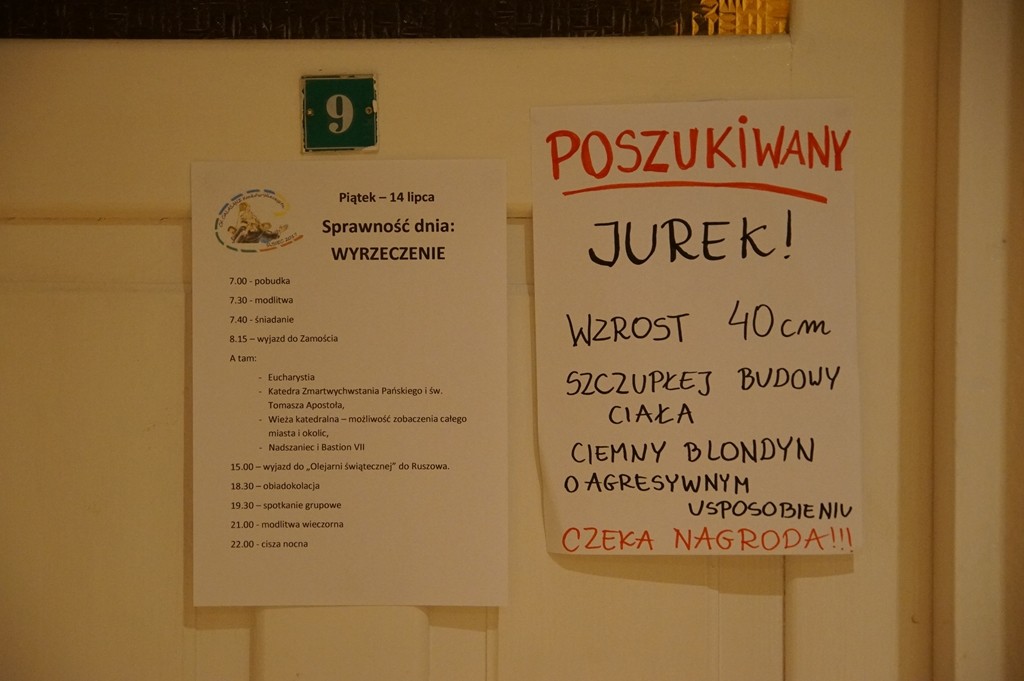 9
Piątek – 14 lipca
Sprawność dnia:
WYRZECZENIE
7.00 - pobudka
7.30 - modlitwa
7.40 - śniadanie
8.15 – wyjazd do Zamościa
A tam:
- Eucharystia
- Katedra Zmartwychwstania Pańskiego i św.
Tomasza Apostoła,
- Wieża katedralna – możliwość zobaczenia całego
miasta i okolic,
- Nadszaniec i Bastion VII
15.00 – wyjazd do „Olejarni świątecznej" do Ruszowa.
18.30 – obiadokolacja
19.30 – spotkanie grupowe
21.00 - modlitwa wieczorna
22.00 - cisza nocna
POSZUKIWANY
JUREK!
WZROST 40cm
SZCZUPŁEJ BUDOWY
CIAŁA
CIEMNY BLONDYN
O AGRESYWNYM
USPOSOBIENIU
CZEKA NAGRODA!!!